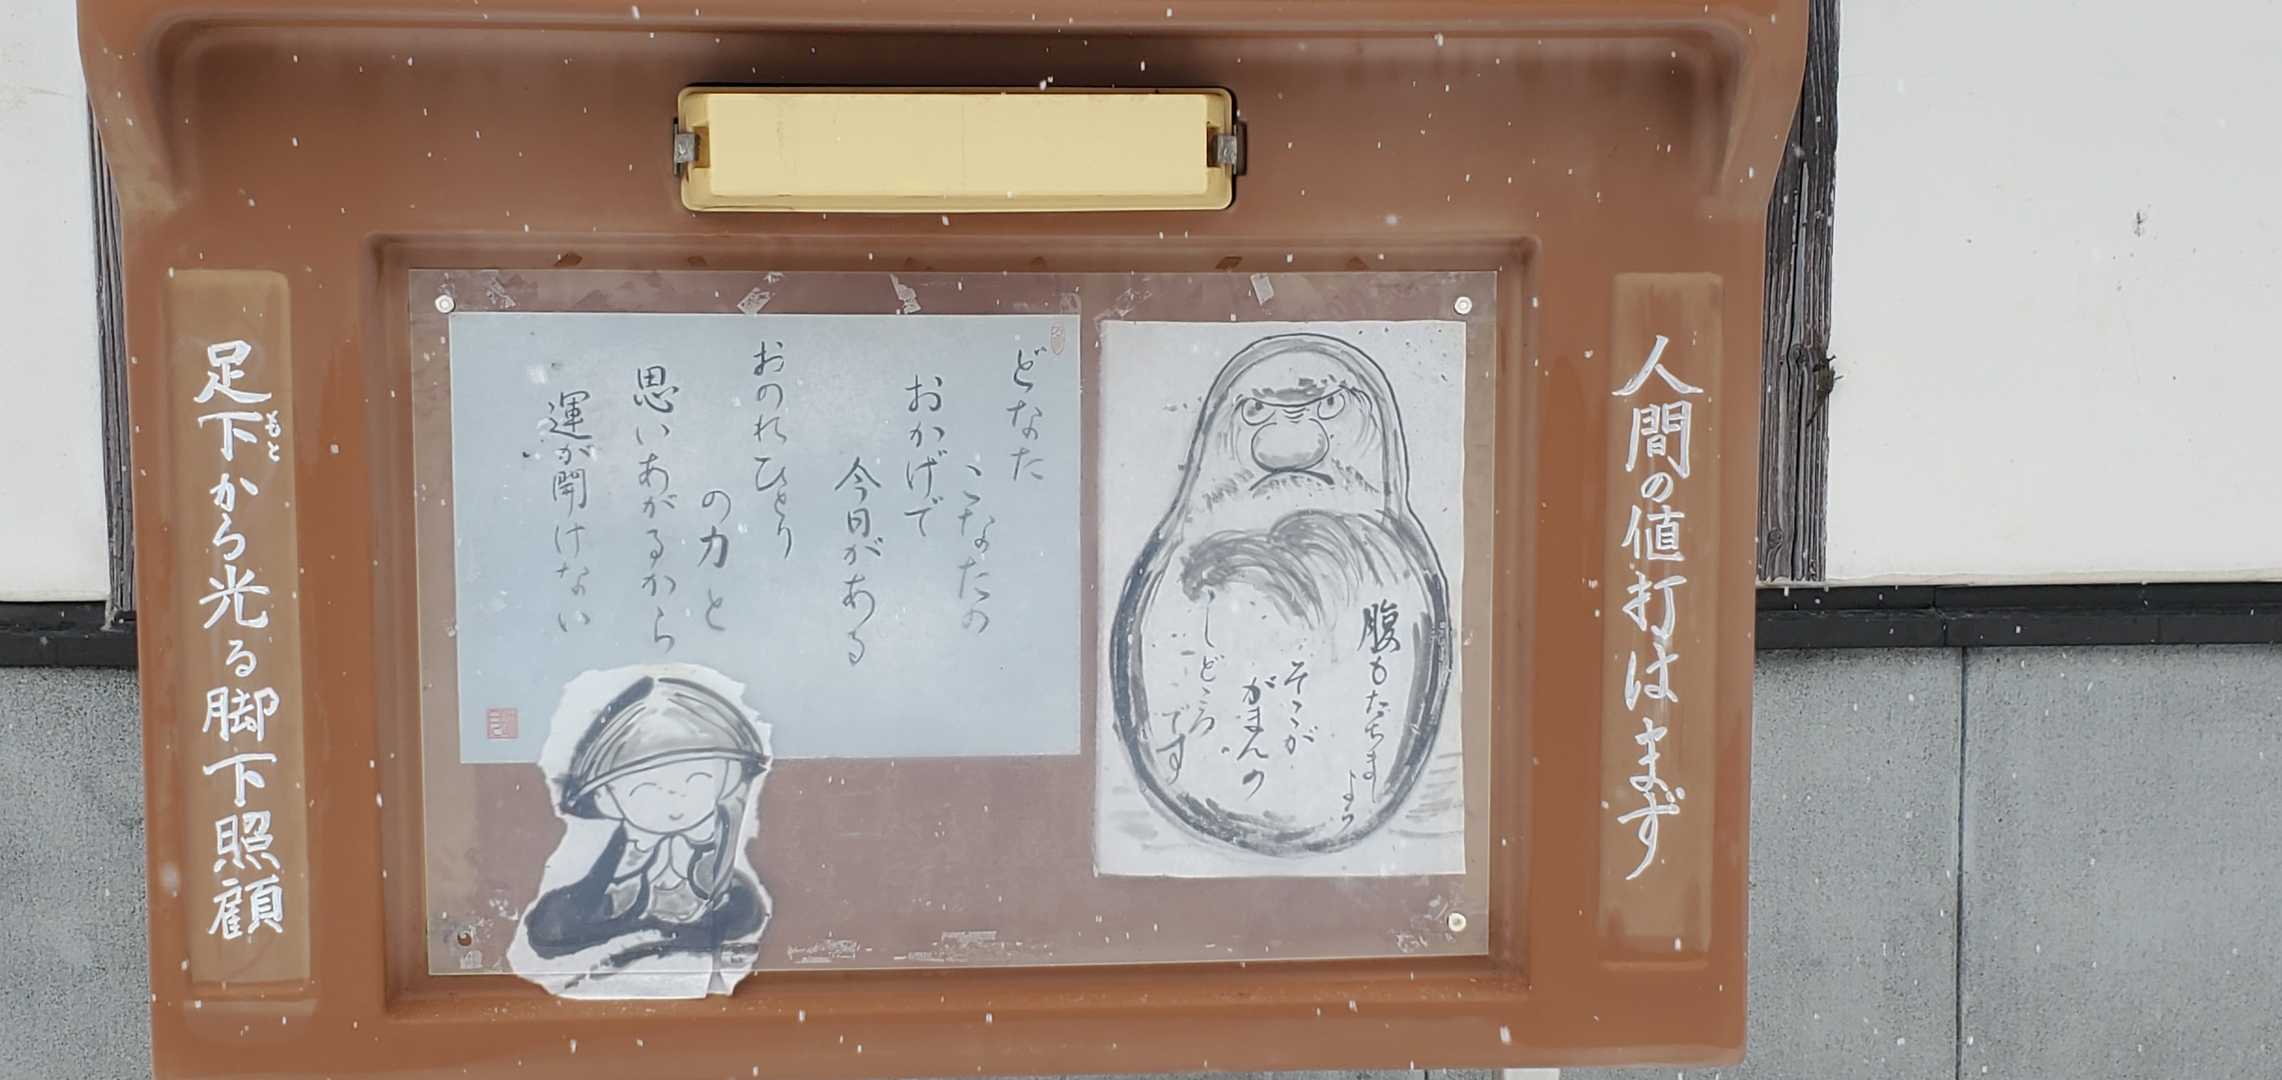 人間の値打はまず
腹もたちましょう
そこが
がまんの
しどころ
です
どなた
こなたの
おかげで
今日がある
おのれひとり
の力と
思いあがるから
運が開けない
足下から光る脚下照顧
もと